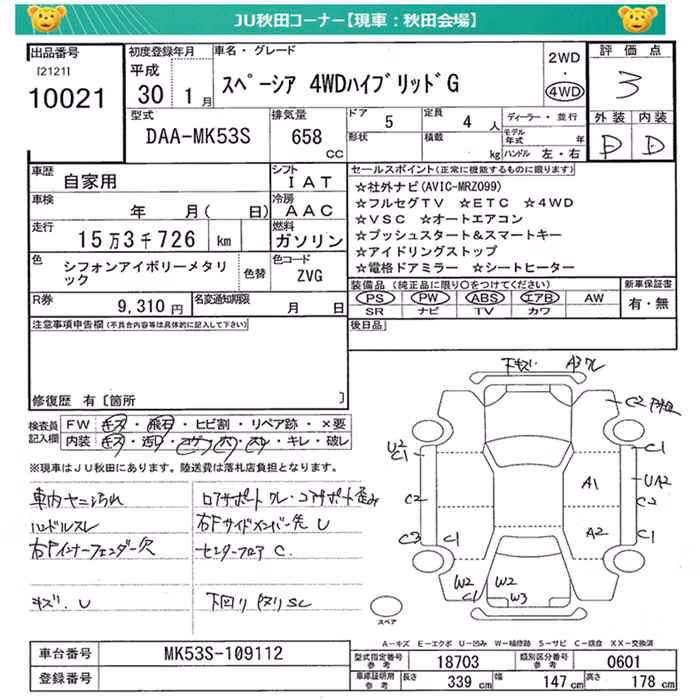 JU秋田コーナー【現車：秋田会場】
出品番号
[2121]
10021
初度登録年月
平成
30 1 月
車名・グレード
スペーシア 4WDハイブリッドG
2WD
・
4WD
評価点
3
外装 内装
D D
型式
DAA-MK53S
排気量
658
CC
ドア 5
形状
定員 4 人
積載 kg
ディーラー・並行
モデル年式 年
ハンドル 左・右
車歴 自家用
シフト IAT
車検 年 月( 日)
冷房 AAC
走行 15万3千726 km
燃料 ガソリン
色 シフォンアイボリーメタリック
色替
色コード ZVG
R券 9,310円
名変通知期限 月 日
セールスポイント(正常に機能するものに限ります)
☆社外ナビ(AVIC-MRZ099)
☆フルセグTV ☆ETC ☆4WD
☆VSC ☆オートエアコン
☆プッシュスタート&スマートキー
☆アイドリングストップ
☆電格ドアミラー ☆シートヒーター
装備品 (純正品に限り○をつけてください)
PS PW ABS エアB AW
SR ナビ TV カワ
新車保証書
有・無
後日品
注意事項申告欄(不具合内容等は具体的に記入して下さい)
修復歴 有[箇所 ]
検査員記入欄
FW キズ・飛石・ヒビ割・リペア跡・×要
内装 キズ・汚レ・コゲ・穴・スレ・キレ・破レ
※現車はJU秋田にあります。陸送費は落札店負担となります。
車内ヤニ汚れ
ハンドルスレ
右Fインナーフェンダー欠
キズ、U
右Fサイドメンバー先 U
センターフロア C
下回り サビSC
下キズ A3ワレ
C2
U2
C1
C1
A1
UA2
C2
C2
A2
C3
C1
C1
W2
C1
W2
W3
スペア
A-キズ E-エクボ U-凹み W-補修跡 S-サビ C-腐食 XX-交換済
車台番号 MK53S-109112
登録番号
型式指定番号 参考 18703
類別区分番号 参考 0601
車庫証明用 参考
長さ 339 cm
幅 147 cm
高さ 178 cm